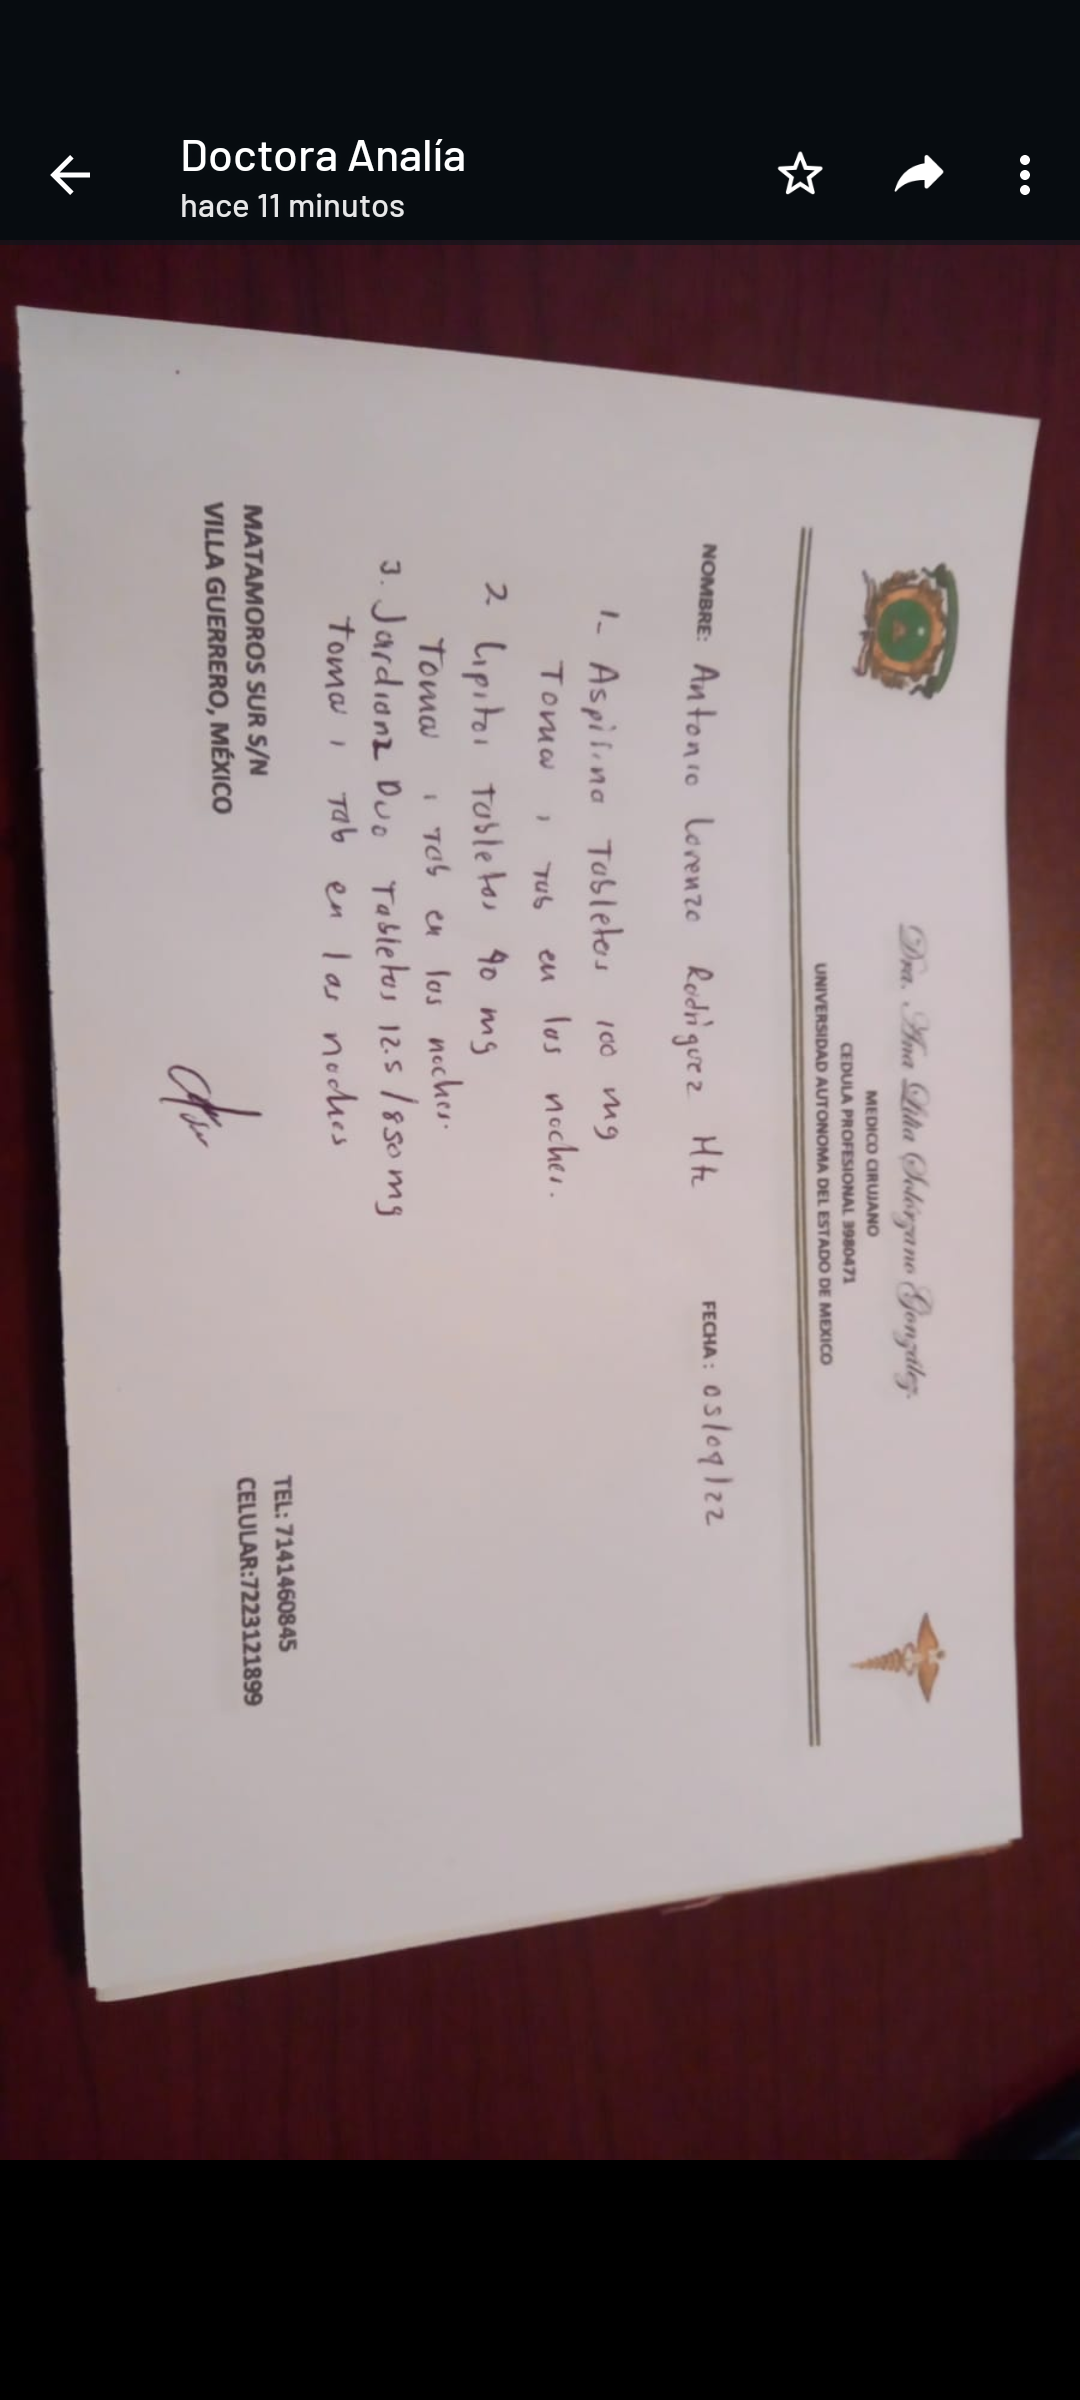 Doctora Analía
hace 11 minutos
Dra. Ana Lilia Solórzano González.
MEDICO CIRUJANO
CEDULA PROFESIONAL 3980471
UNIVERSIDAD AUTONOMA DEL ESTADO DE MEXICO
NOMBRE: Antonio Lorenzo Rodriguez Htz FECHA: 05/09/22
1- Aspirina Tabletas 100 mg
Toma 1 Tab en las noches.
2 Lipitor Tabletas 40 mg
Toma 1 Tab en las noches.
3. Jardianz Duo Tabletas 12.5/850mg
Toma 1 Tab en las noches
MATAMOROS SUR S/N
VILLA GUERRERO, MÉXICO
TEL: 7141460845
CELULAR:7223121899